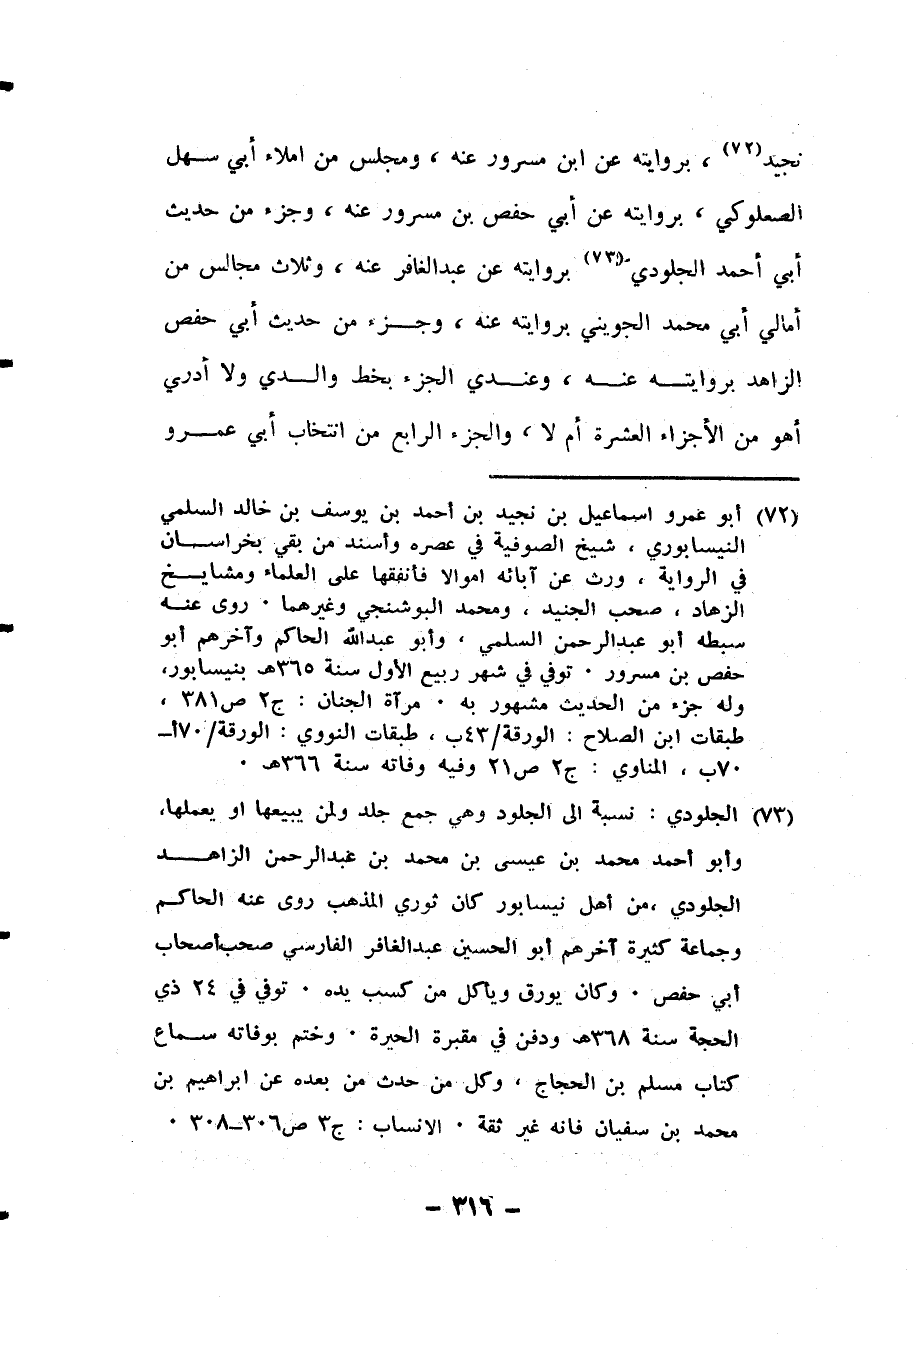 نجيد(٧٢) ، بروايته عن ابن مسرور عنه ، ومجلس من املاء أبي سـهل
الصعلوكي ، بروايته عن أبي حفص بن مسرور عنه ، وجزء من حديث
أبي أحمد الجلودي(٧٣) بروايته عن عبدالغافر عنه ، وثلاث مجالس من
أمالي أبي محمد الجويني بروايته عنه ، وجـــزء من حديث أبي حفص
الزاهد بروايتــه عنــه ، وعنــدي الجزء بخط والــدي ولا أدري
أهو من الأجزاء العشرة أم لا ، والجزء الرابع من انتخاب أبي عمــرو
(٧٢) أبو عمرو اسماعيل بن نجيد بن أحمد بن يوسف بن خالد السلمي
النيسابوري ، شيخ الصوفية في عصره وأسند من بقي بخراسـان
في الرواية ، ورث عن آبائه اموالا فأنفقها على العلماء ومشايــخ
الزهاد ، صحب الجنيد ، ومحمد البوشنجي وغيرهما ٠ روى عنـه
سبطه أبو عبدالرحمن السلمي ، وأبو عبدالله الحاكم وآخرهم أبو
حفص بن مسرور ٠ توفي في شهر ربيع الأول سنة ٣٦٥هـ بنيسابور،
وله جزء من الحديث مشهور به ٠ مرآة الجنان : ج٢ ص٣٨١ ،
طبقات ابن الصلاح : الورقة/٤٣ب ، طبقات النووي : الورقة/٧٠أـ
٧٠ب ، المناوي : ج٢ ص٢١ وفيه وفاته سنة ٣٦٦هـ ٠
(٧٣) الجلودي : نسبة الى الجلود وهي جمع جلد ولمن يبيعها او يعملها،
وأبو أحمد محمد بن عيسى بن محمد بن عبدالرحمن الزاهــد
الجلودي ،من أهل نيسابور كان ثوري المذهب روى عنه الحاكـم
وجماعة كثيرة آخرهم أبو الحسين عبدالغافر الفارسي صحب أصحاب
أبي حفص ٠ وكان يورق ويأكل من كسب يده ٠ توفي في ٢٤ ذي
الحجة سنة ٣٦٨هـ ودفن في مقبرة الحيرة ٠ وختم بوفاته ســماع
كتاب مسلم بن الحجاج ، وكل من حدث من بعده عن ابراهيم بن
محمد بن سفيان فانه غير ثقة ٠ الانساب : ج٣ ص٣٠٦ـ٣٠٨ ٠
- ٣١٦ -